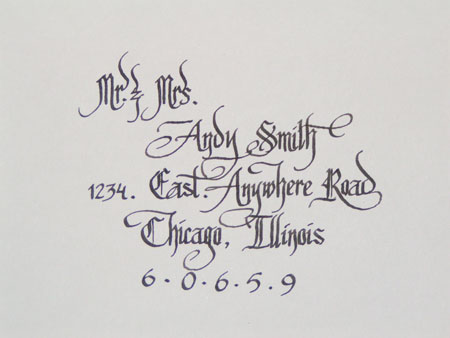 Mr. & Mrs.
Andy Smith
1234. East. Anywhere Road
Chicago, Illinois
6 · 0 · 6 · 5 · 9